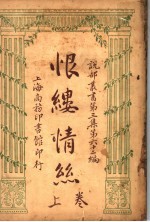 說部叢書第三集第六十三編
恨縷情絲
卷上
上海商務印書館印行